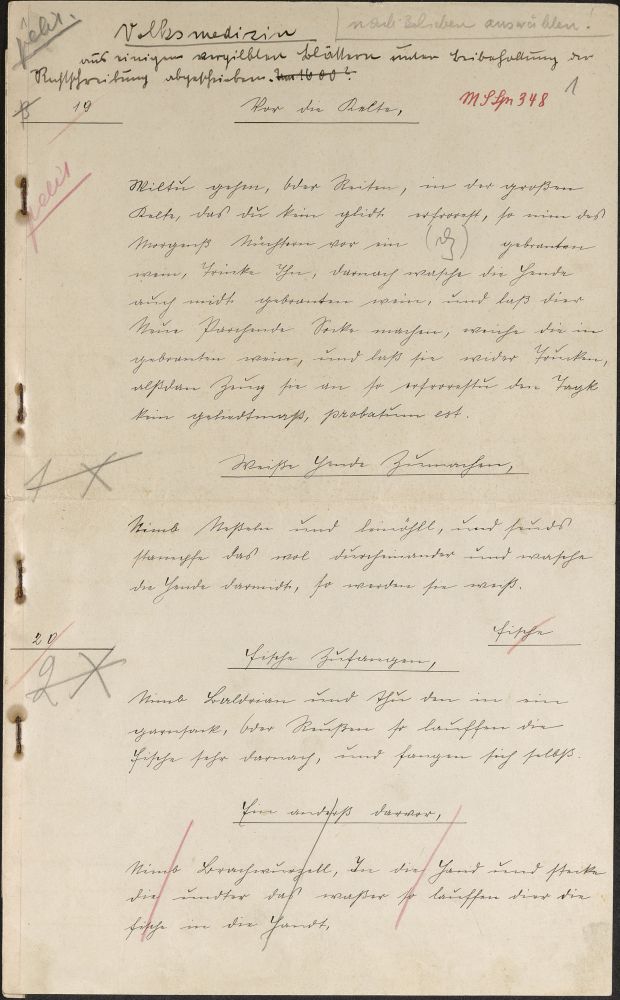 Volksmedizin
nach Belieben auswählen!
aus einigen vergilbten Blättern unter Beibehaltung der
Rechtschreibung abgeschrieben. Um 1600?
MSSgn 348
1
19
Vor die Kelte,
Wiltu gehen, oder Reiten, in der großen
Kelte, das du kein glidt erfrorest, so nim des
Morgenß Nüchtern vor ein gebranten
wein, Trinke Ihn, darnach wasche die Hende
auch midt gebranten wein, und laß dier
Neue Parchende Socke machen, weiche die in
gebranten wein, und laß sie wider Trucken,
alßdan Zeug sie an so erfrorestu den Tagk
kein geliedtmaß, probatum est.
1 X
Weiße Hende Zumachen,
Nimb Neßeln und leinöhll, und
stampfe das wol durcheinander und wasche
die Hende darmidt, so werden sie weiß.
20
fische
2 X
fische Zufangen,
Nimb Baldrian und Thu den in ein
garnsack, oder Reußen so lauffen die
fische sehr darnach, und fangen sich selbß.
Ein anderß darvor,
Nimb Brachwurzell, In die Hand und stecke
die undter daß waßer so lauffen dier die
fische in die Handt,